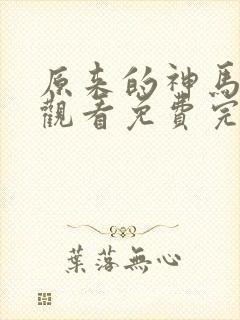 原来的神馬
觀看免費完
葉落無心